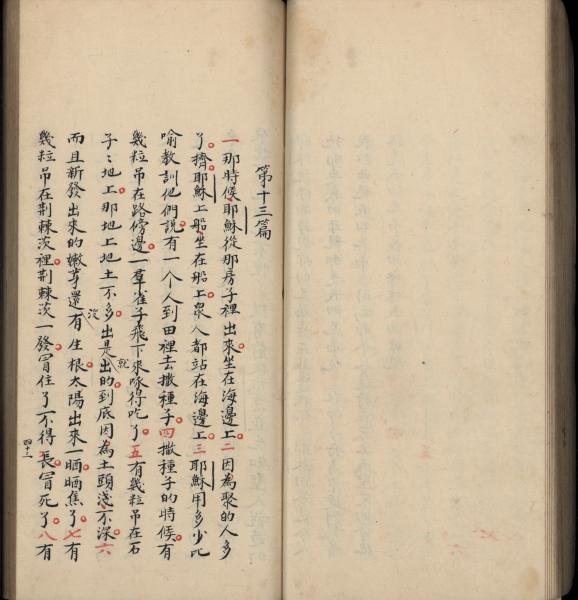 第十三篇
一那時候耶穌從那房子裡出來坐在海邊上二因為聚的人多
了擠耶穌上船坐在船上衆人都站在海邊上三耶穌用多少比
喻教訓他們說有一个人到田裡去撒種子四撒種子的時候有
幾粒吊在路傍邊一羣雀子飛下來啄得吃了五有幾粒吊在石
子〻地上那地上地土不多出是出的就到底因為土頭淺不深六
而且新發出來的嫩芽還沒有生根太陽出來一晒晒焦了七有
幾粒吊在荆棘茨裡荆棘茨一發冒住了不得長冒死了八有
四十三